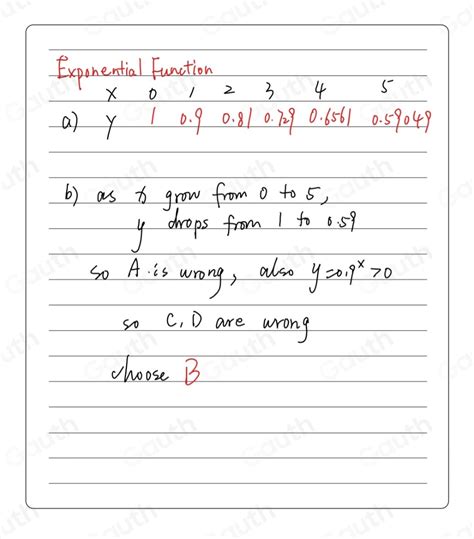 Exponential Function
x 0 1 2 3 4 5
a) y 1 0.9 0.81 0.729 0.6561 0.59049
b) as x grow from 0 to 5,
y drops from 1 to 0.59
so A is wrong, also y=0.9^x >0
so C, D are wrong
choose B